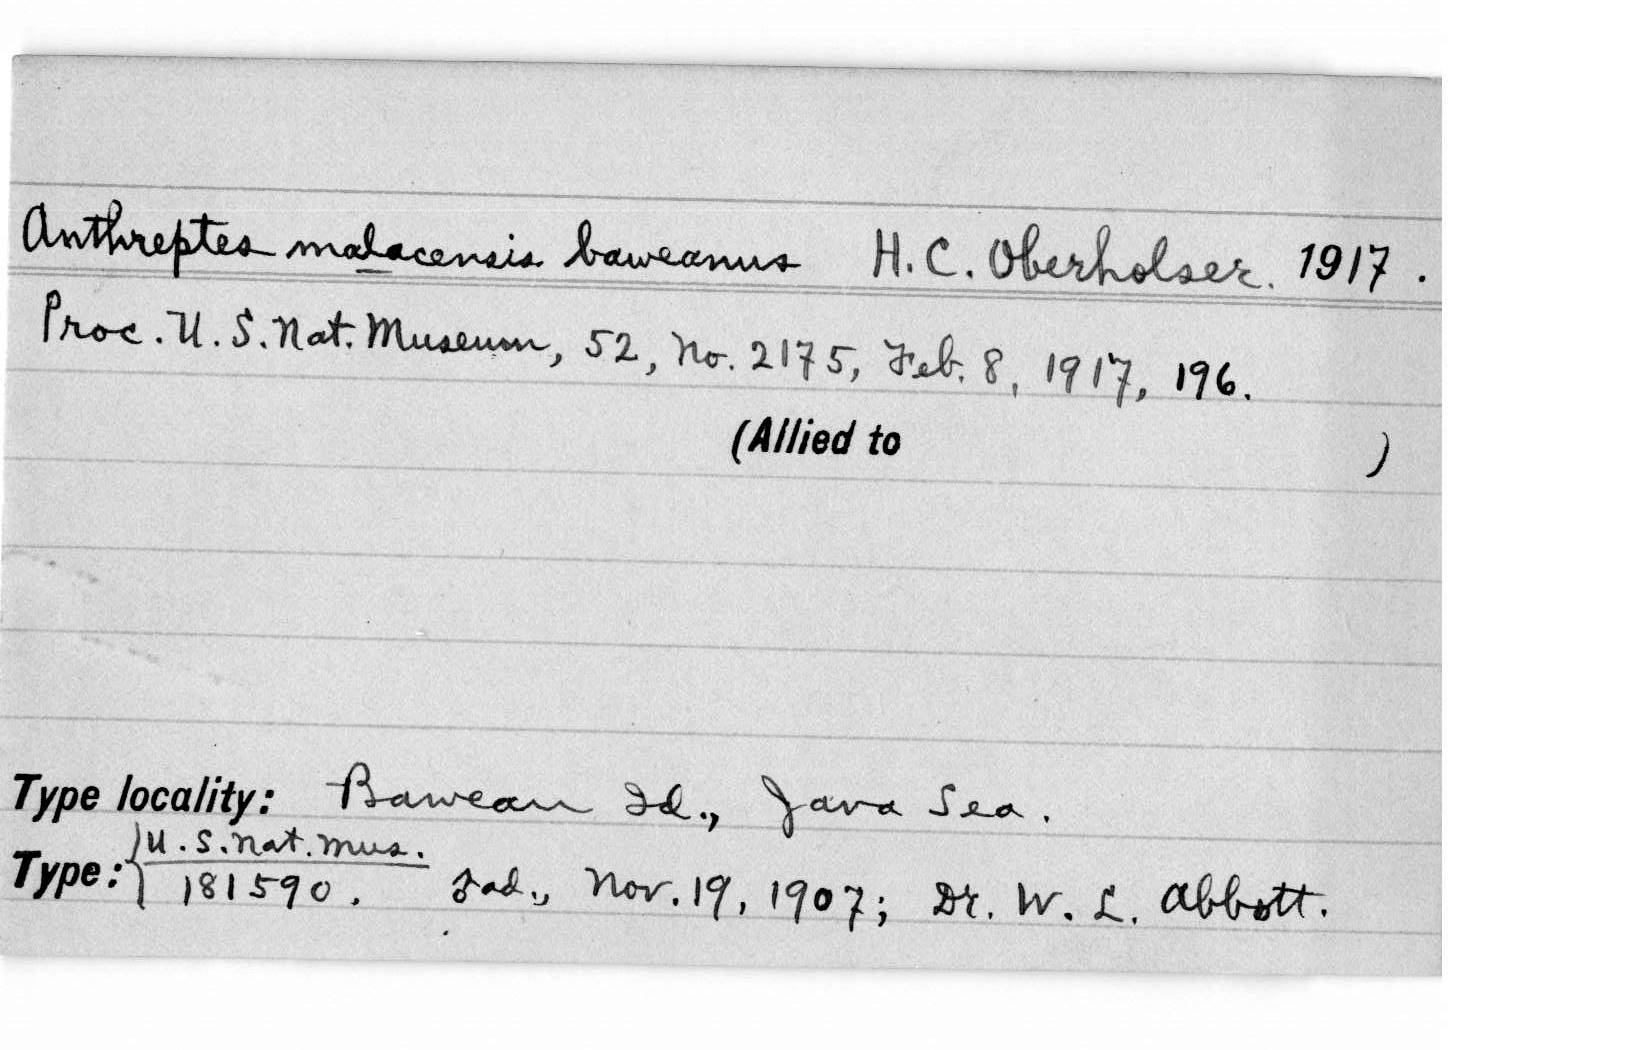 Anthreptes malacensis baweanus H. C. Oberholser. 1917.
Proc. U. S. Nat. Museum, 52, No. 2175, Feb. 8, 1917, 196.
(Allied to )
Type locality: Bawean Id., Java Sea.
U. S. Nat. Mus.
Type: { 181590. ad., Nov. 19, 1907; Dr. W. L. Abbott.